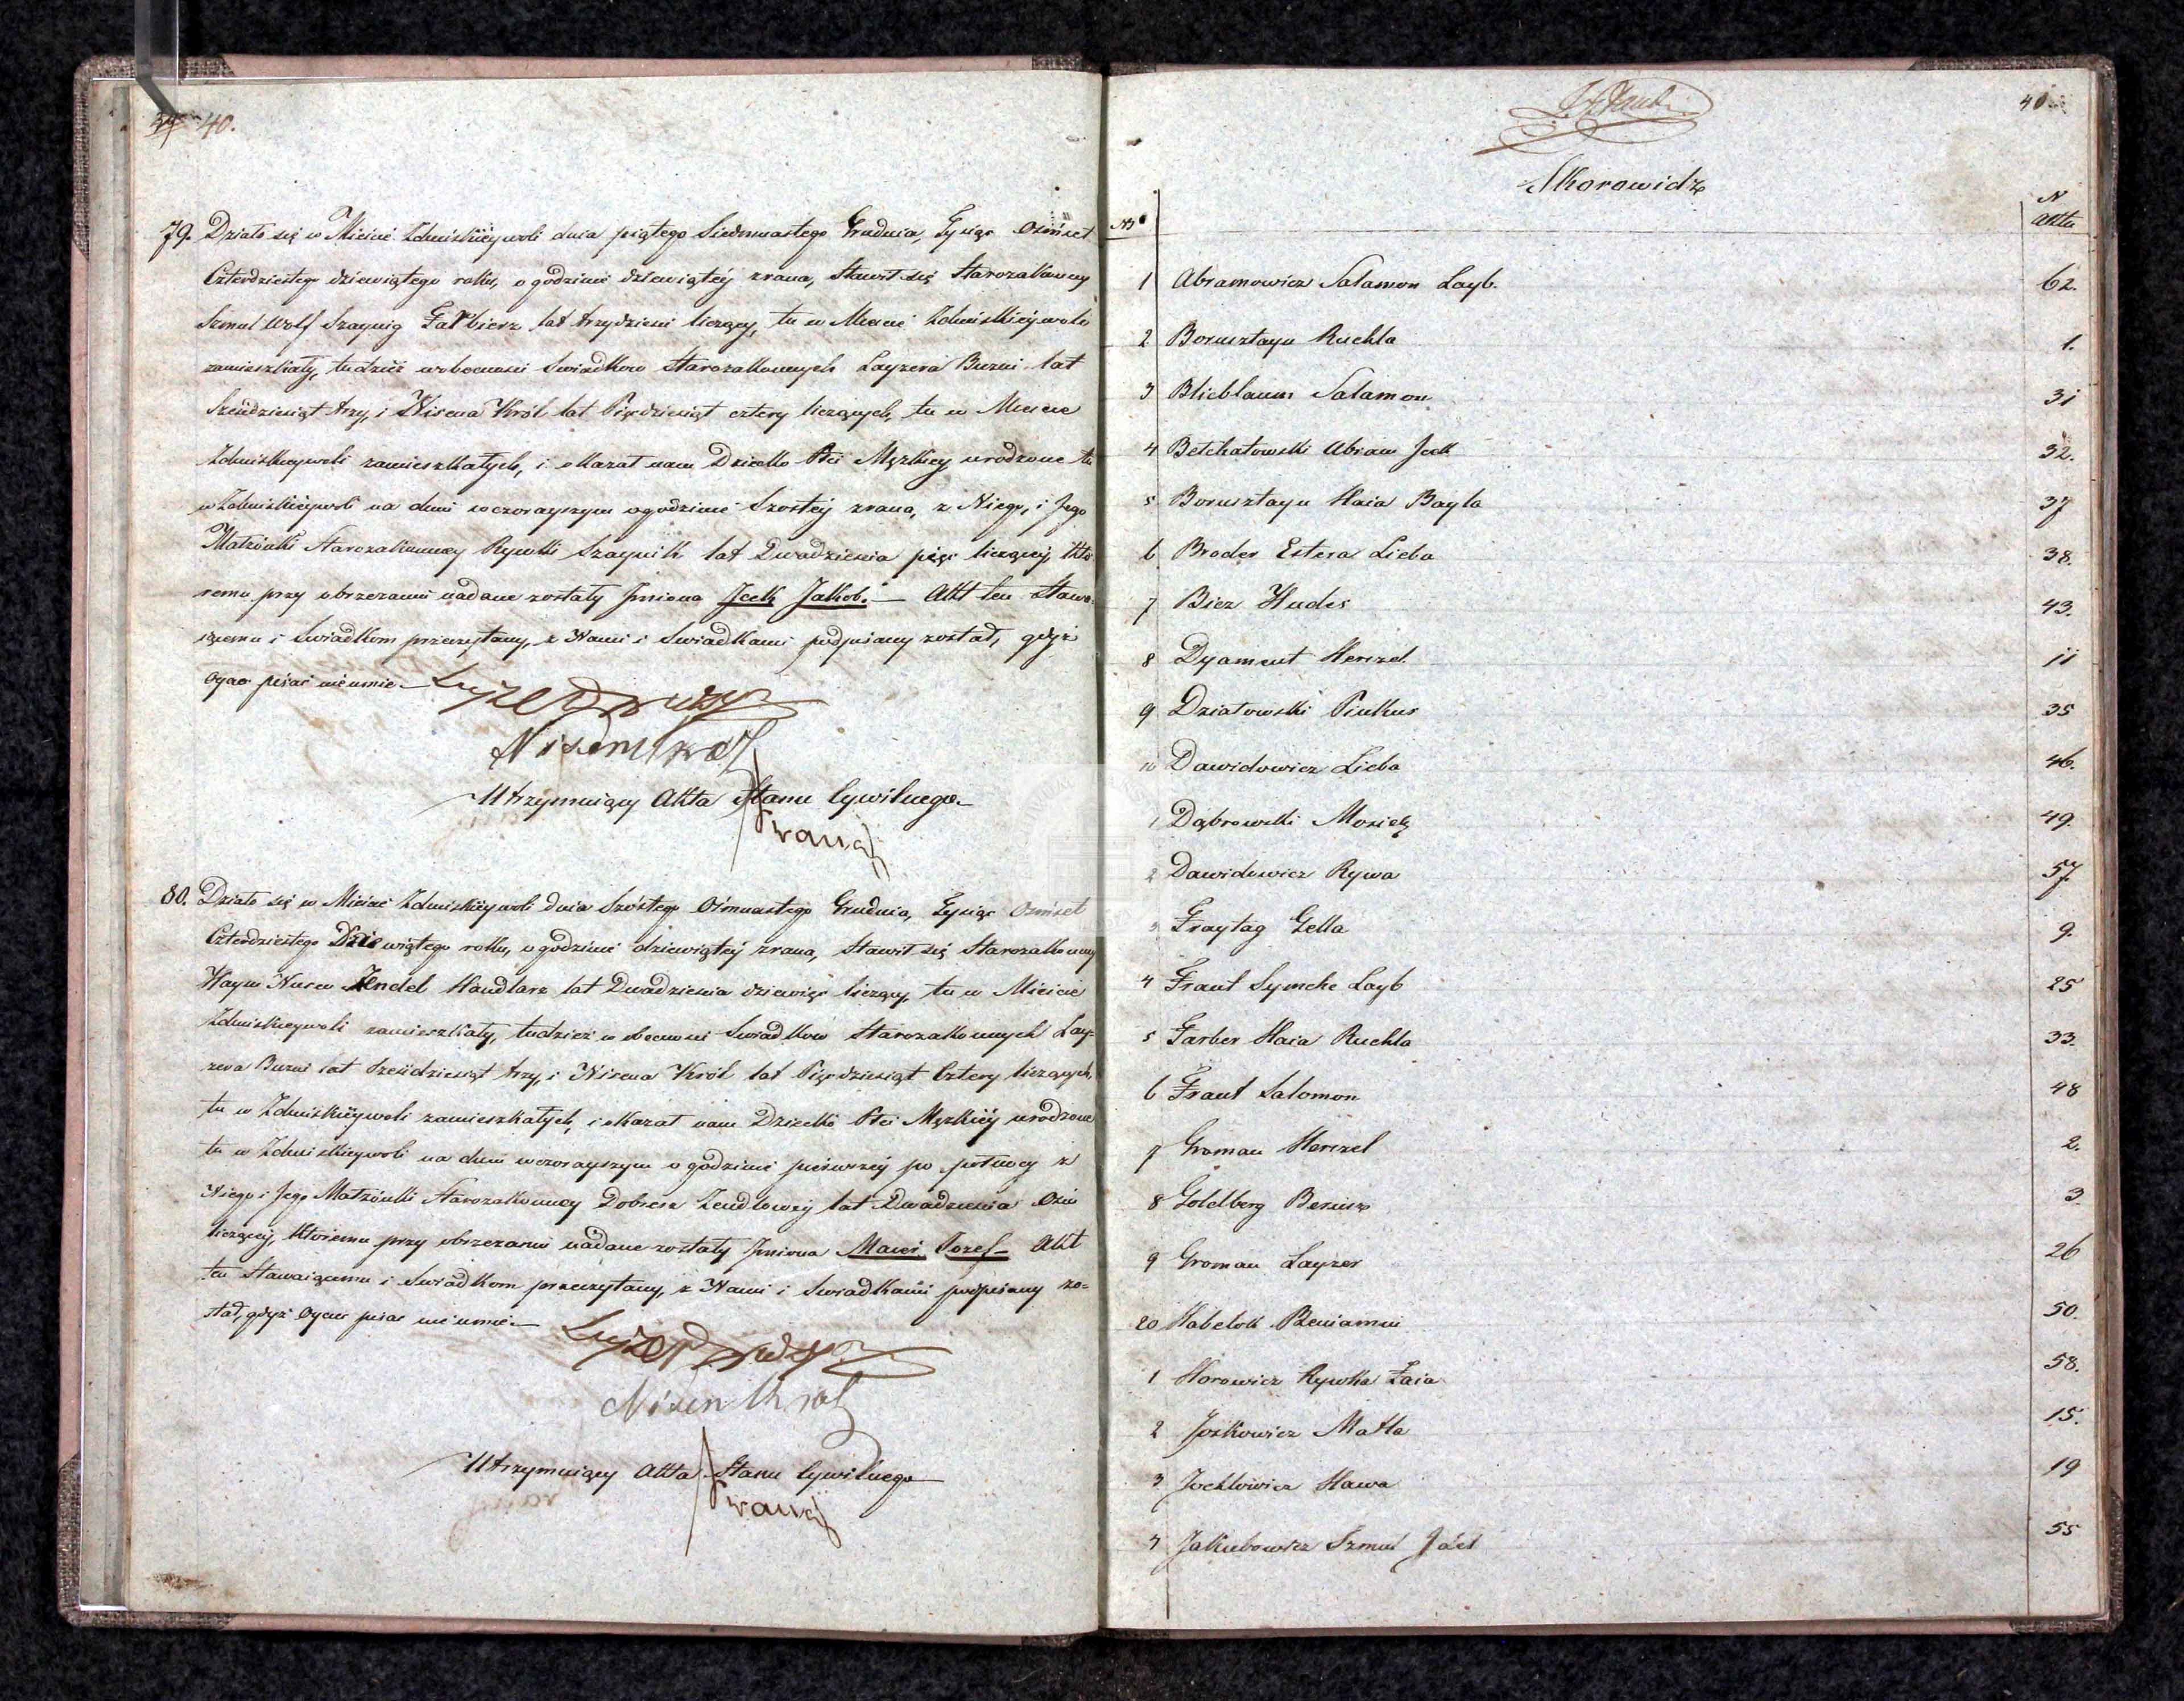 40.
79. Działo się w Mieście Zduńskiéywoli dnia piątego Siedmnastego Grudnia, Tysiąc Osmset
Czterdziestego dziewiątego roku, o godzinie dziewiątéy zrana, Stawił się Starozakonny
Szmul Wolf Szaynig Farbierz lat trzydzieści liczący, tu w Mieście Zduńskiéywoli
zamieszkały, tudzież w obecności Swiadków Starozakonnych Layzera Buzni lat
Sześćdziesiąt trzy, i Nisena Król lat Pięćdziesiąt cztery liczących, tu w Mieście
Zduńskieywoli zamieszkałych, i okazał nam Dziecko Płci Męzkiey urodzone tu
w Zduńskiéywoli na dniu wczorayszym o godzinie Szostéy zrana, z Niego, i Jego
Małżonki Starozakonney Rywki Szaynik lat Dwadzieścia pięć liczącéy, któ-
remu przy obrzezaniu nadane zostały Jmiona Jcek Jakob. — Akt ten Stawa-
iącemu i Swiadkom przeczytany, z Nami i Swiadkami podpisany został, gdyż
Oyciec pisać nieumie —
Nisen Krol
Utrzymuiący Akta Stanu Cywilnego —
80. Działo się w Mieście Zduńskiéywoli dnia Szóstego Ośmnastego Grudnia, Tysiąc Osmset
Czterdziestego Dziewiątego roku, o godzinie dziewiątéy zrana, Stawił się Starozakonny
Haym Nusen Zendel Handlarz lat Dwadzieścia dziewięć liczący, tu w Mieście
Zduńskieywoli zamieszkały, tudzież w obecności Swiadków Starozakonnych Lay-
zera Buzni lat Sześćdziesiąt trzy, i Nisena Król lat Pięćdziesiąt Cztery liczących,
tu w Zduńskiéywoli zamieszkałych, i okazał nam Dziecko Płci Męzkiéy urodzone
tu w Zduńskieywoli na dniu wczorayszym o godzinie pierwszéy po północy z
Niego i Jego Małżonki Starozakonney Dobresa Zendlowéy lat Dwadzieścia Ośm
liczącéy, któremu przy obrzezaniu nadane zostały Jmiona Maier Jozef — Akt
ten Stawaiącemu i Swiadkom przeczytany, z Nami i Swiadkami podpisany zo-
stał, gdyż Oyciec pisać nieumie —
Nisen Krol
Utrzymuiący Akta Stanu Cywilnego —
40
Skorowidz
No N Aktu
1 Abramowicz Salamon Layb. 62.
2 Borusztayn Ruchla 1.
3 Blieblaum Salamon 31
4 Bełchatowski Abram Jcek 32.
5 Borusztayn Haia Bayla 37
6 Broder Estera Lieba 38.
7 Biez Hudes 43.
8 Dyament Herszel. 11
9 Działowski Pinkus 35
10 Dawidowicz Lieba 46.
1 Dąbrowski Mosiek 49.
2 Dawidowicz Rywa 57.
3 Fraytag Gella 9.
4 Frant Symche Layb 25
5 Farber Haia Ruchla 33.
6 Frant Salomon 48
7 Groman Herszel 2.
8 Goldberg Berisz 3.
9 Groman Layzer 26
20 Habelok Beniamin 50.
1 Horowicz Rywka Faia 58.
2 Joskowicz Matla 15.
3 Jochlowicz Hawa 19
4 Jakubowicz Szmul Joäl 55